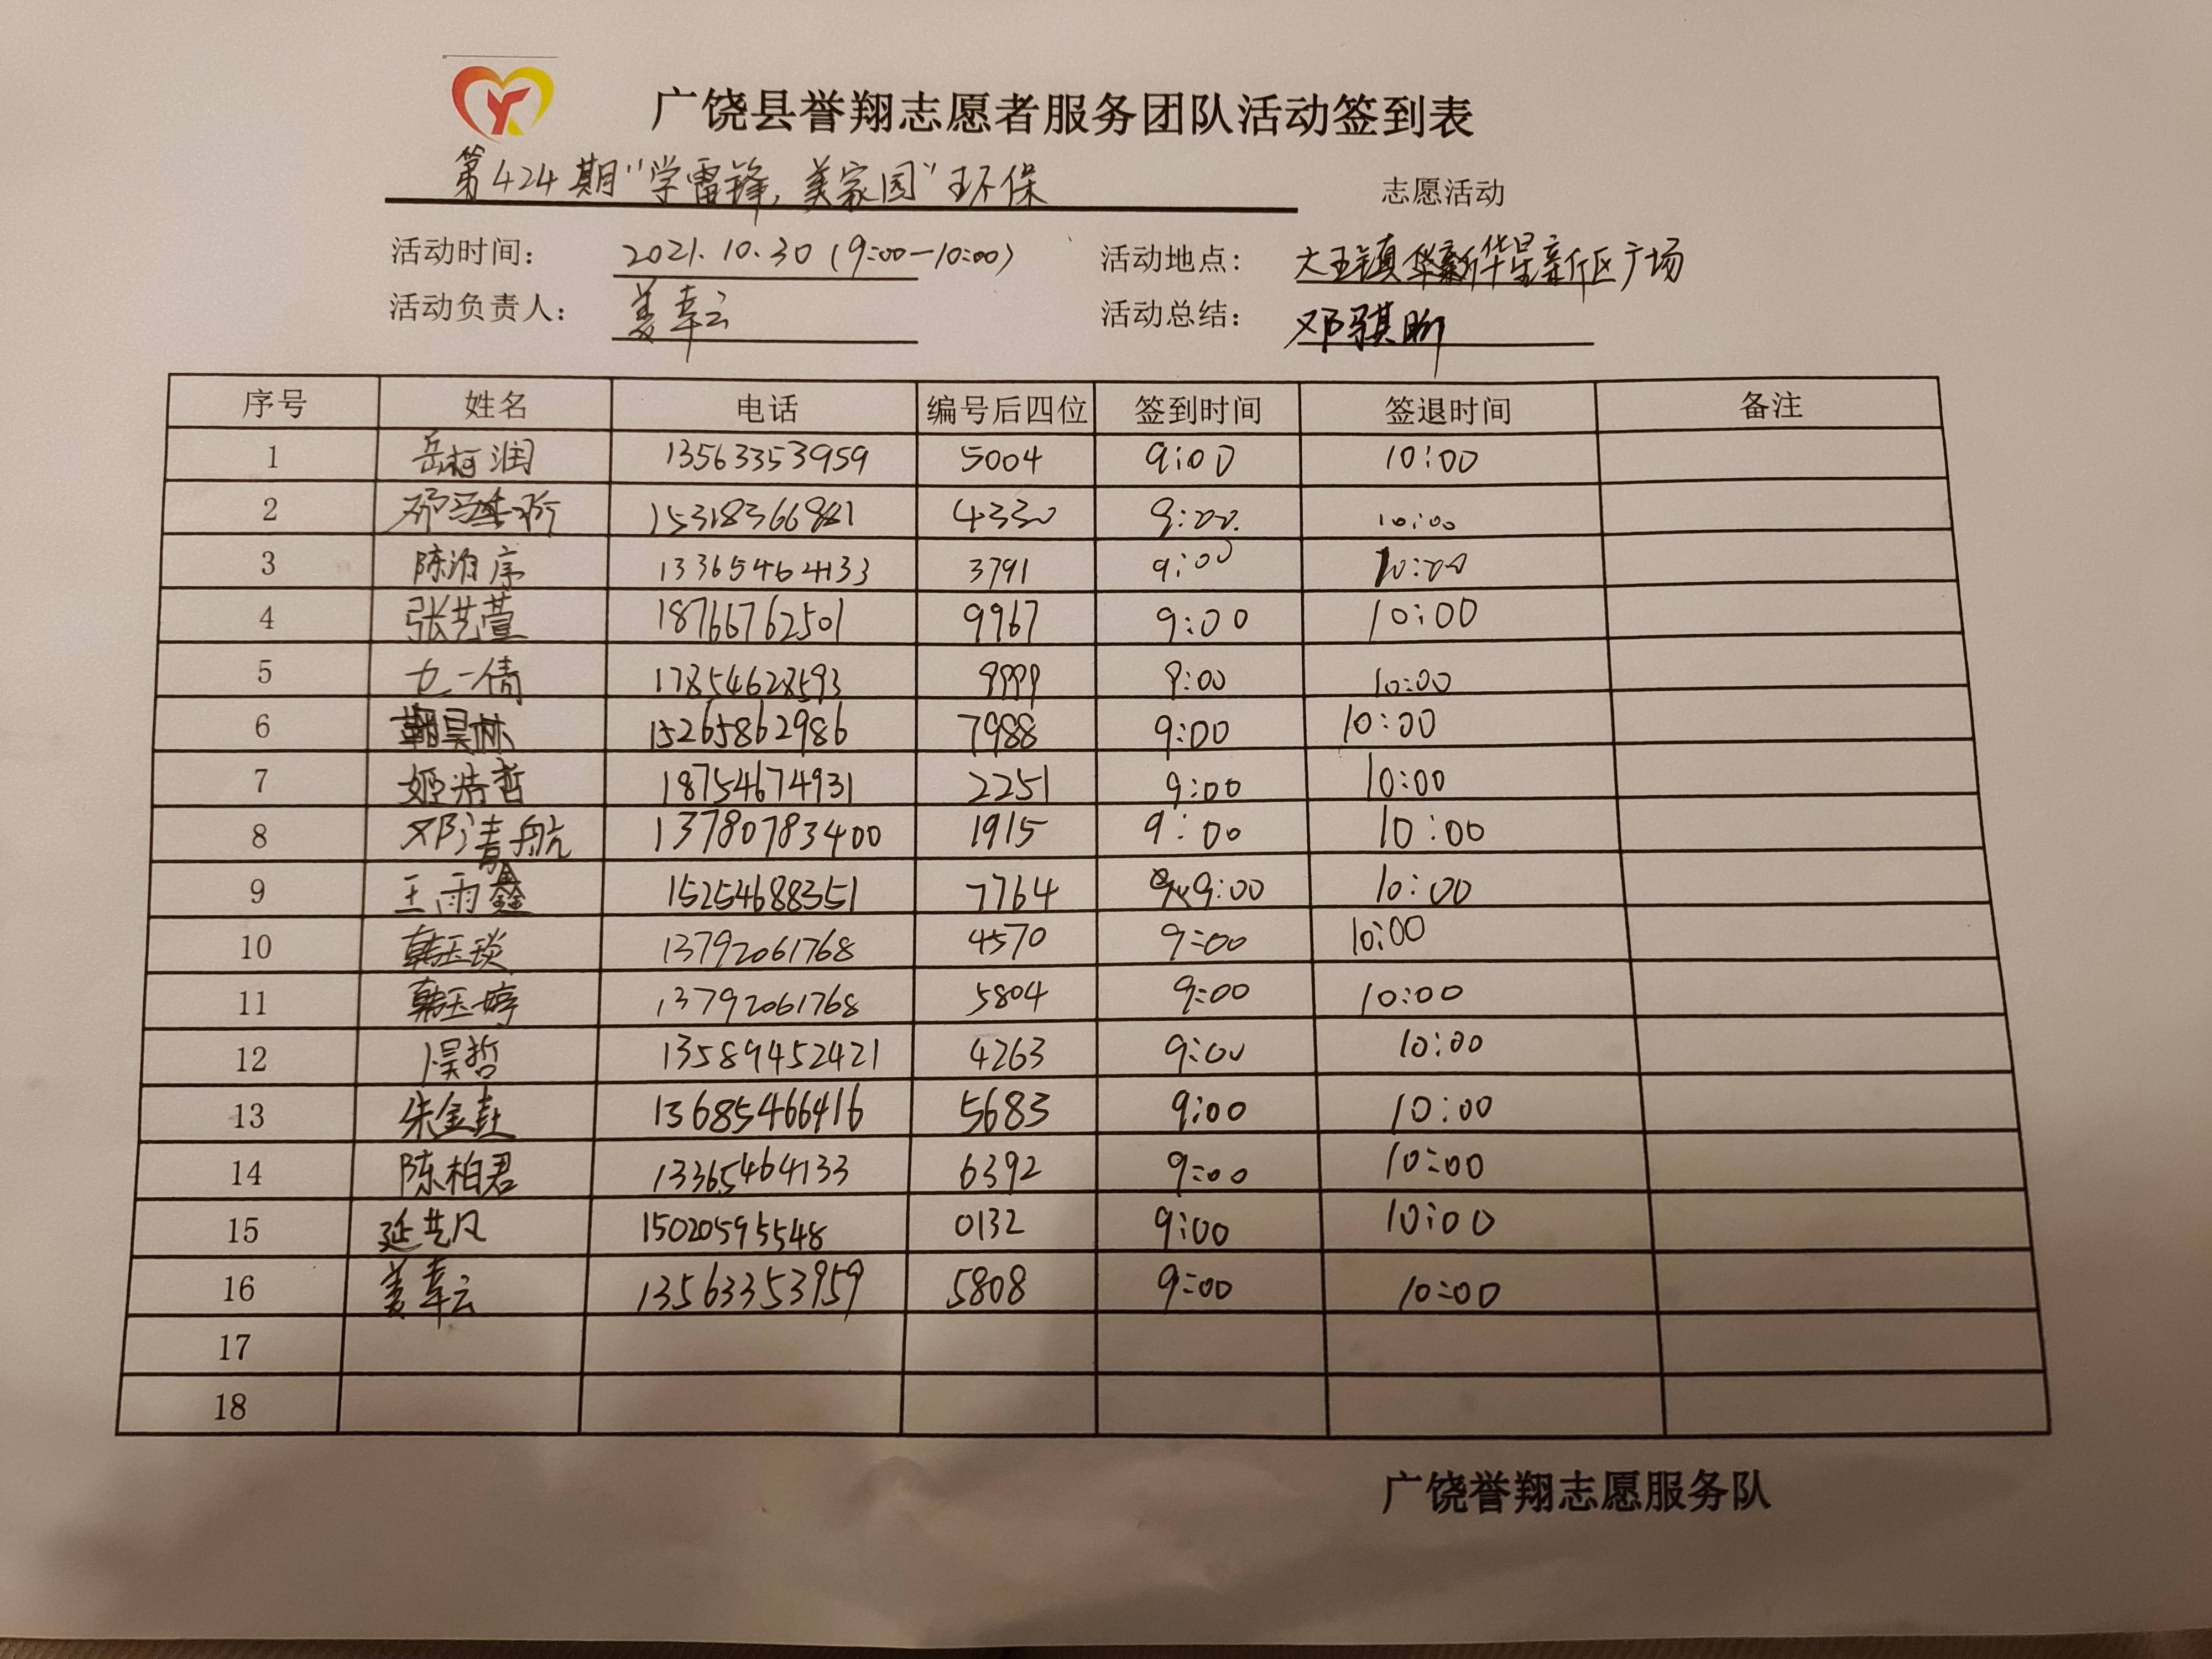 广饶县誉翔志愿者服务团队活动签到表
第424期"学雷锋,美家园"环保 志愿活动
活动时间: 2021.10.30 (9:00-10:00) 活动地点: 大王镇 华星新区广场
活动负责人: 姜幸云 活动总结: 邓骐昕
序号 姓名 电话 编号后四位 签到时间 签退时间 备注
1 岳柯润 13563353959 5004 9:00 10:00
2 15318366981 4330 9:00 10:00
3 陈泊序 13365464133 3791 9:00 10:00
4 张艺萱 18766762501 9967 9:00 10:00
5 一倩 17854628593 9999 9:00 10:00
6 昊林 15265862986 7988 9:00 10:00
7 姬浩哲 18754674931 2251 9:00 10:00
8 邓清航 13780783400 1915 9:00 10:00
9 王雨鑫 15254688351 7764 9:00 10:00
10 韩玉琰 13792061768 4570 9:00 10:00
11 韩玉婷 13792061768 5804 9:00 10:00
12 哲 13589452421 4263 9:00 10:00
13 朱金 13685466416 5683 9:00 10:00
14 陈柏君 13365464133 6392 9:00 10:00
15 延艺凡 15020595548 0132 9:00 10:00
16 姜幸云 13563353959 5808 9:00 10:00
17
18
广饶誉翔志愿服务队